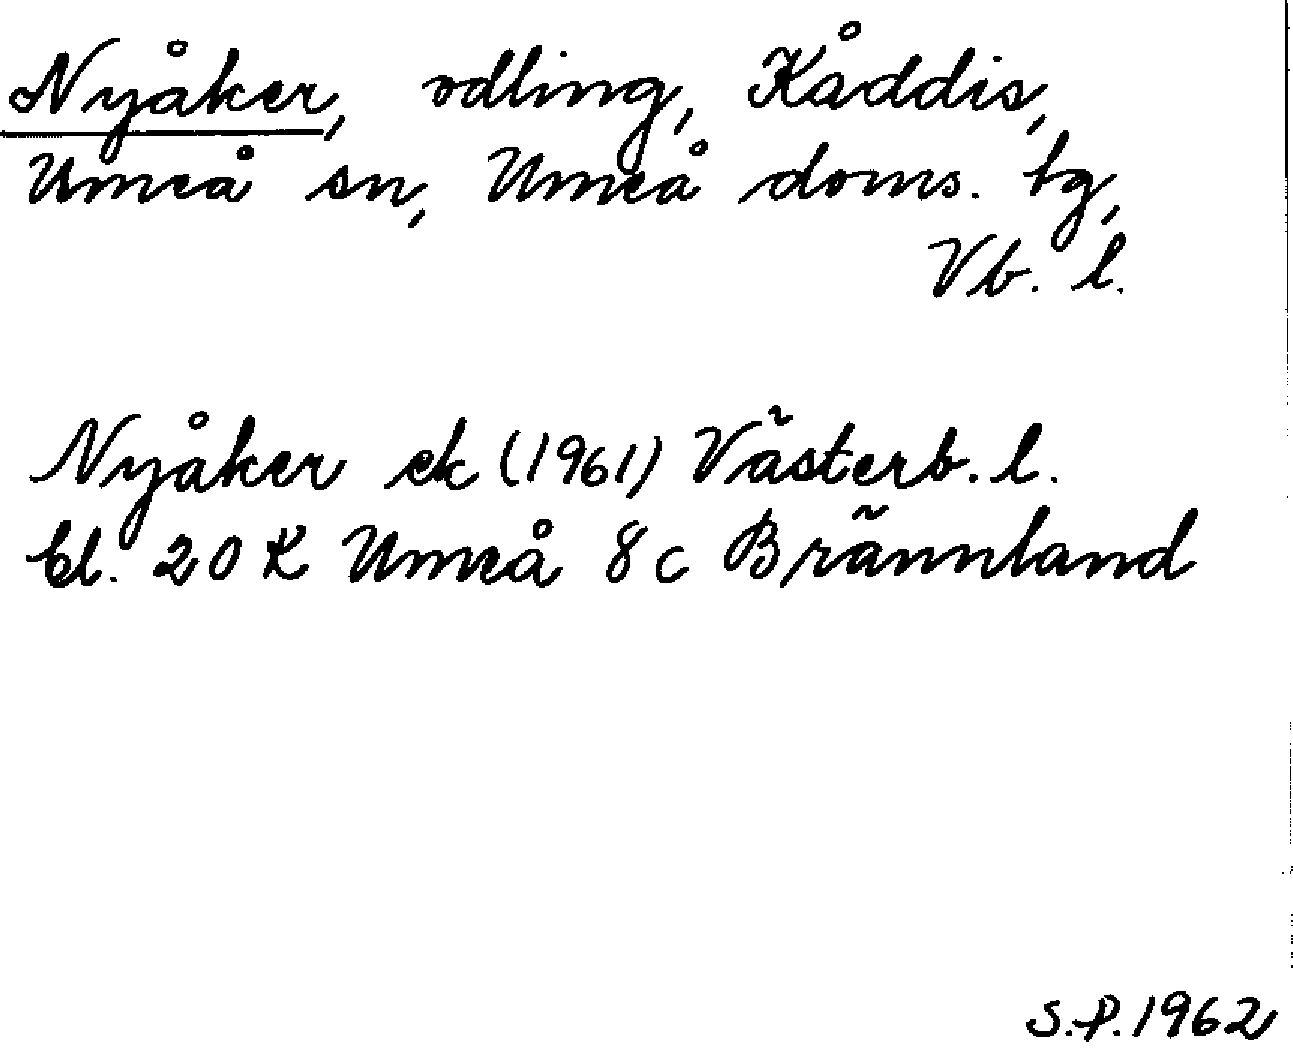 Nyåker, odling, Kåddis,
Umeå sn, Umeå doms. tg,
Vb. l.
Nyåker ek (1961) Västerb. l.
bl. 20 K Umeå 8c Brännland
S.P. 1962